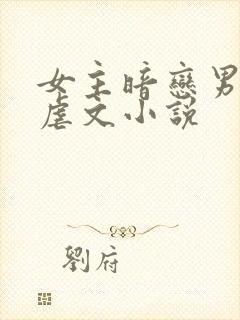 女主暗戀男
虐文小說
劉府